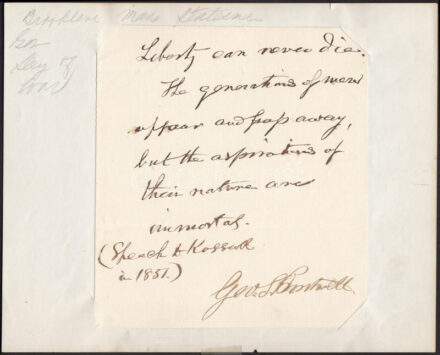 Brookline Mass Statesman
Gov
Secy of
War
Liberty can never die.
The generations of men
appear and pass away,
but the aspirations of
their nature are
immortal.
(Speech to Kossuth
in 1851.)
Geo. S. Boutwell.